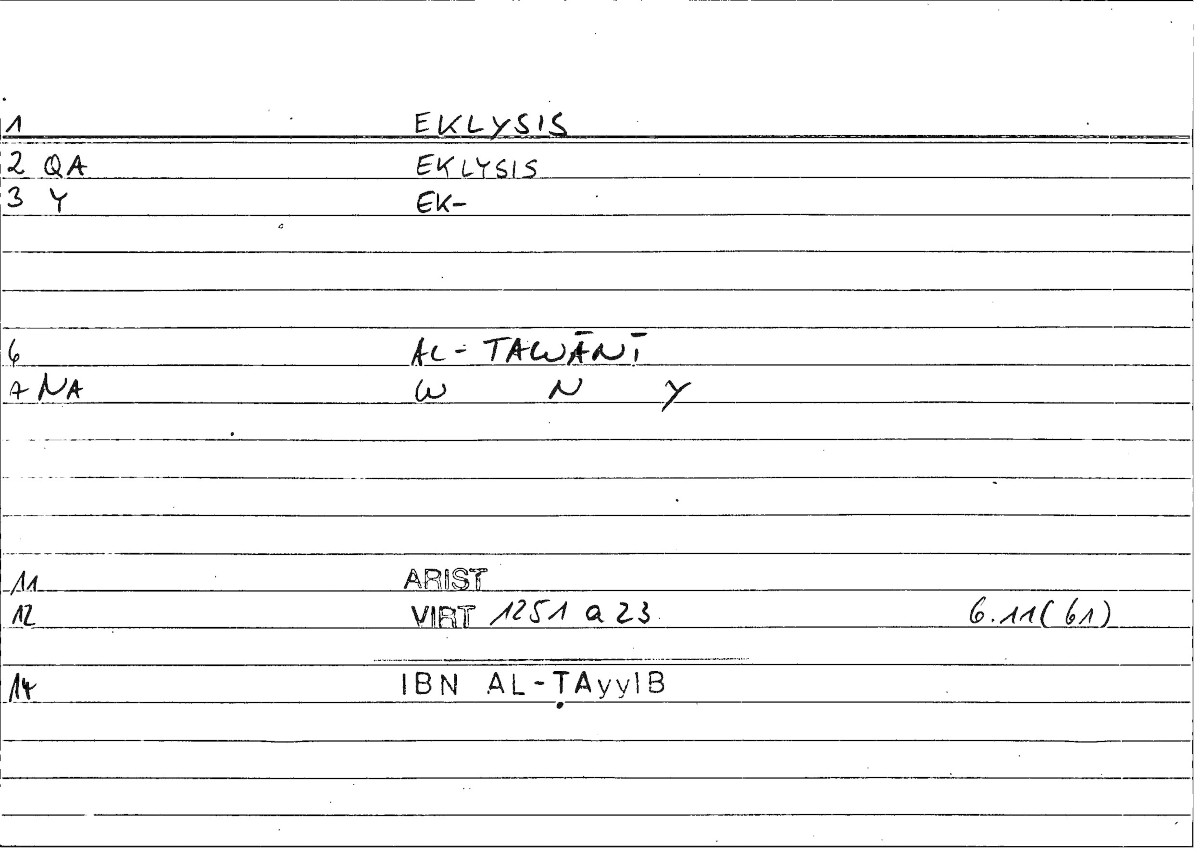 1 EKLYSIS
2 QA EKLYSIS
3 Y EK-
6 AL-TAWĀNĪ
7 NA W N Y
11 ARIST
12 VIRT 1251 a 23 6.11(61)
14 IBN AL-ṬAyyIB